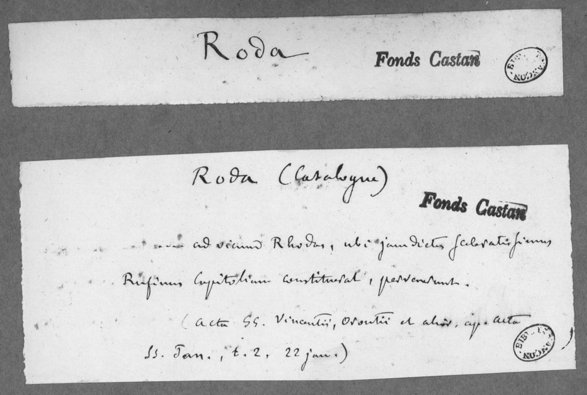 Roda
Fonds Castan
Roda (Catalogne)
Fonds Castan
ad vicum Rhodas, ubi jamdictus sceleratissimus
Rufinus Capitolium constituerat, pervenerunt.
(Acta SS. Vincentii, Orontii et alior. ap. Acta
SS. Jan., t. 2, 22 jan.)